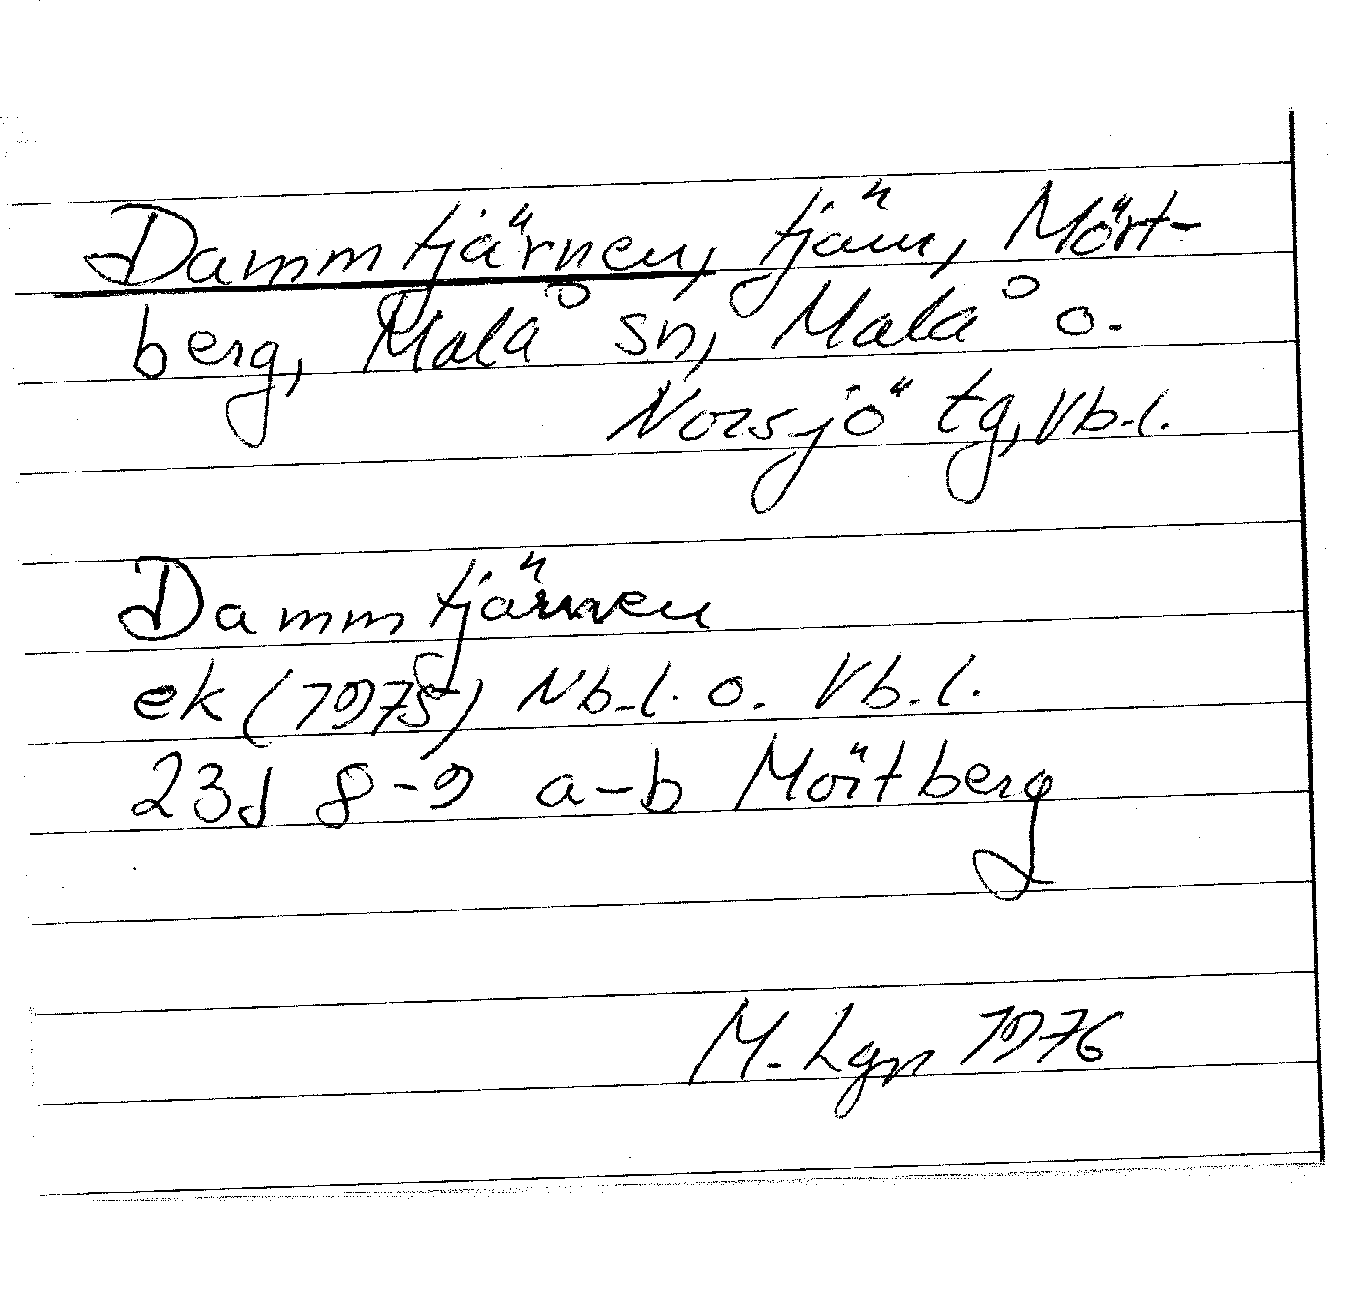 Dammtjärnen, tjärn, Mört-
berg, Malå sn, Malå o.
Norsjö tg, Vb.l.
Dammtjärnen
ek (1975) Nb.l. o. Vb.l.
23J 8-9 a-b Mörtberg
M. Lgn 1976